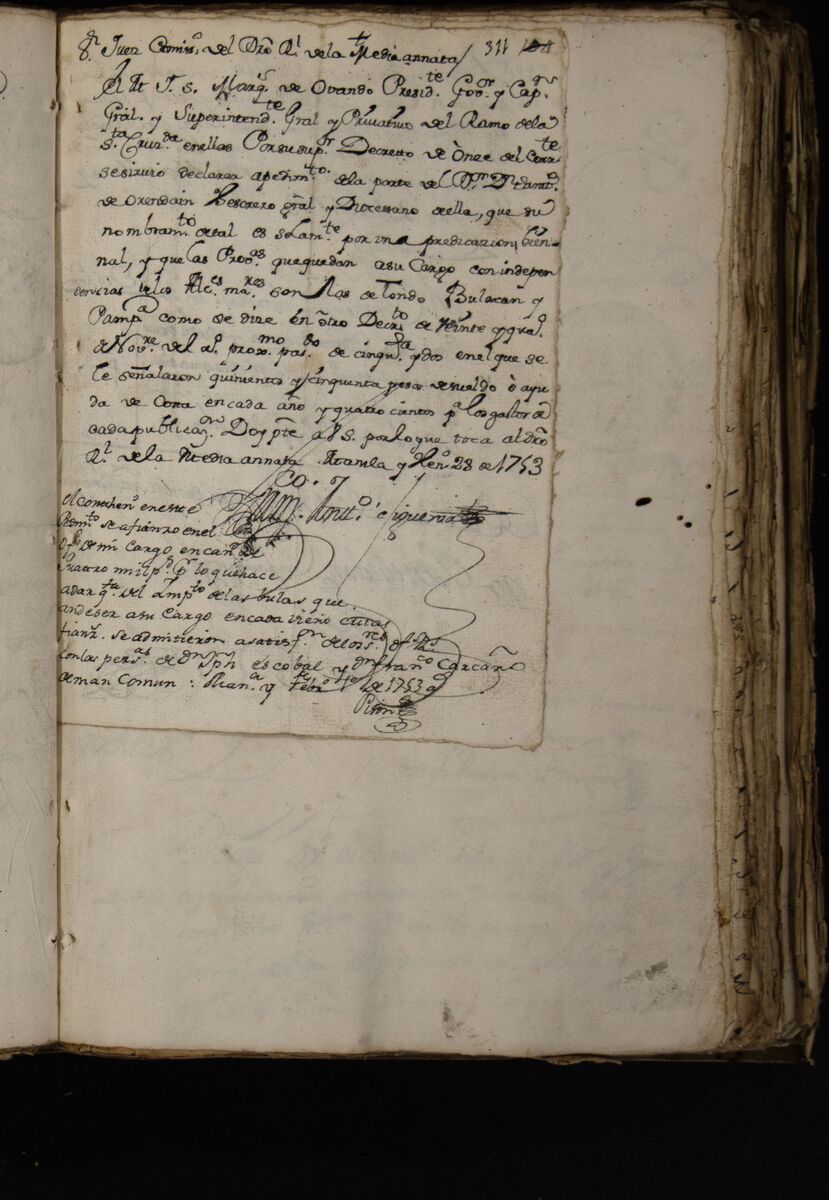 S.r Juez Comiss.o del Dro R.l de la Media annata 311
El M. I. S. Marq.s de Ovando Presid.te Gov.or y Cap.n
Gral. y Superintend.te Gral y Privativo del Ramo de la
S.ta Cruz.da en ellas Por su sup.r Decretto de Onze del Corr.te
se sirvio declarar a pedim.to de la parte del D.r D.n
de Orendain Thesorero gral y Diocessano de ella, que su
nombram.to de tal es solam.te por una predicacion bien-
nal, y que las Prov.as que quedan a su Cargo con indepen
dencias de los Alc.es ma.res son las de Tondo Bulacan y
Pamp.a como se dize en otro Decr.to de Veinte y qua.o
de Nov.re del a.o prox.mo pas.do de cinq.ta y dos en el que se
le señalaron quinientos y cinquenta pesos de sueldo ò ayu
da de Costa en cada año y quatro cientos p.a los gastos de
cada publicaz.n Doy pte a V S. por lo que toca al dro
R.l de la Media annata. Manila y Hen.o 28 de 1753
en este
se afianzo en el
Ofi.o de mi Cargo en can.d de
Quattro mil p.s p.r lo que hace
a dar q.ta del Imp.to de las bulas que
an de ser a su Cargo en cada vienio cuias
fianz.s se admitieron a satisf.n de los s.res ofs Rs.
con las pers.as de dn Jph escobal y dn Fran.co Carcaño
de man Comun: Man.a y Febr.o de 1753 a.s